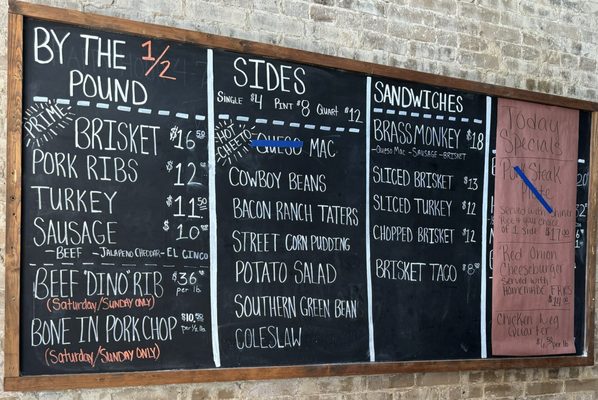 BY THE 1/2
POUND
PRIME
BRISKET $16.50
PORK RIBS $12.00
TURKEY $11.50
SAUSAGE $10.00
-BEEF -JALAPEÑO CHEDDAR -EL CINCO
BEEF "DINO" RIB $36.00
per lb.
(Saturday/Sunday ONLY)
BONE IN PORK CHOP $10.50
per ½ lb.
(Saturday/Sunday ONLY)
SIDES
Single $4 Pint $8 Quart $12
HOT
CHEETO
QUESO MAC
COWBOY BEANS
BACON RANCH TATERS
STREET CORN PUDDING
POTATO SALAD
SOUTHERN GREEN BEAN
COLESLAW
SANDWICHES
BRASS MONKEY $18
-Queso Mac -SAUSAGE -BRISKET
SLICED BRISKET $13
SLICED TURKEY $12
CHOPPED BRISKET $12
BRISKET TACO $8.00
Today
Specials
Pork Steak
Plate
Served w/
of 1 side $17.00
Red Onion
Cheeseburger
Served with
Homemade FRIES
Chicken Leg
Quarter
per lb